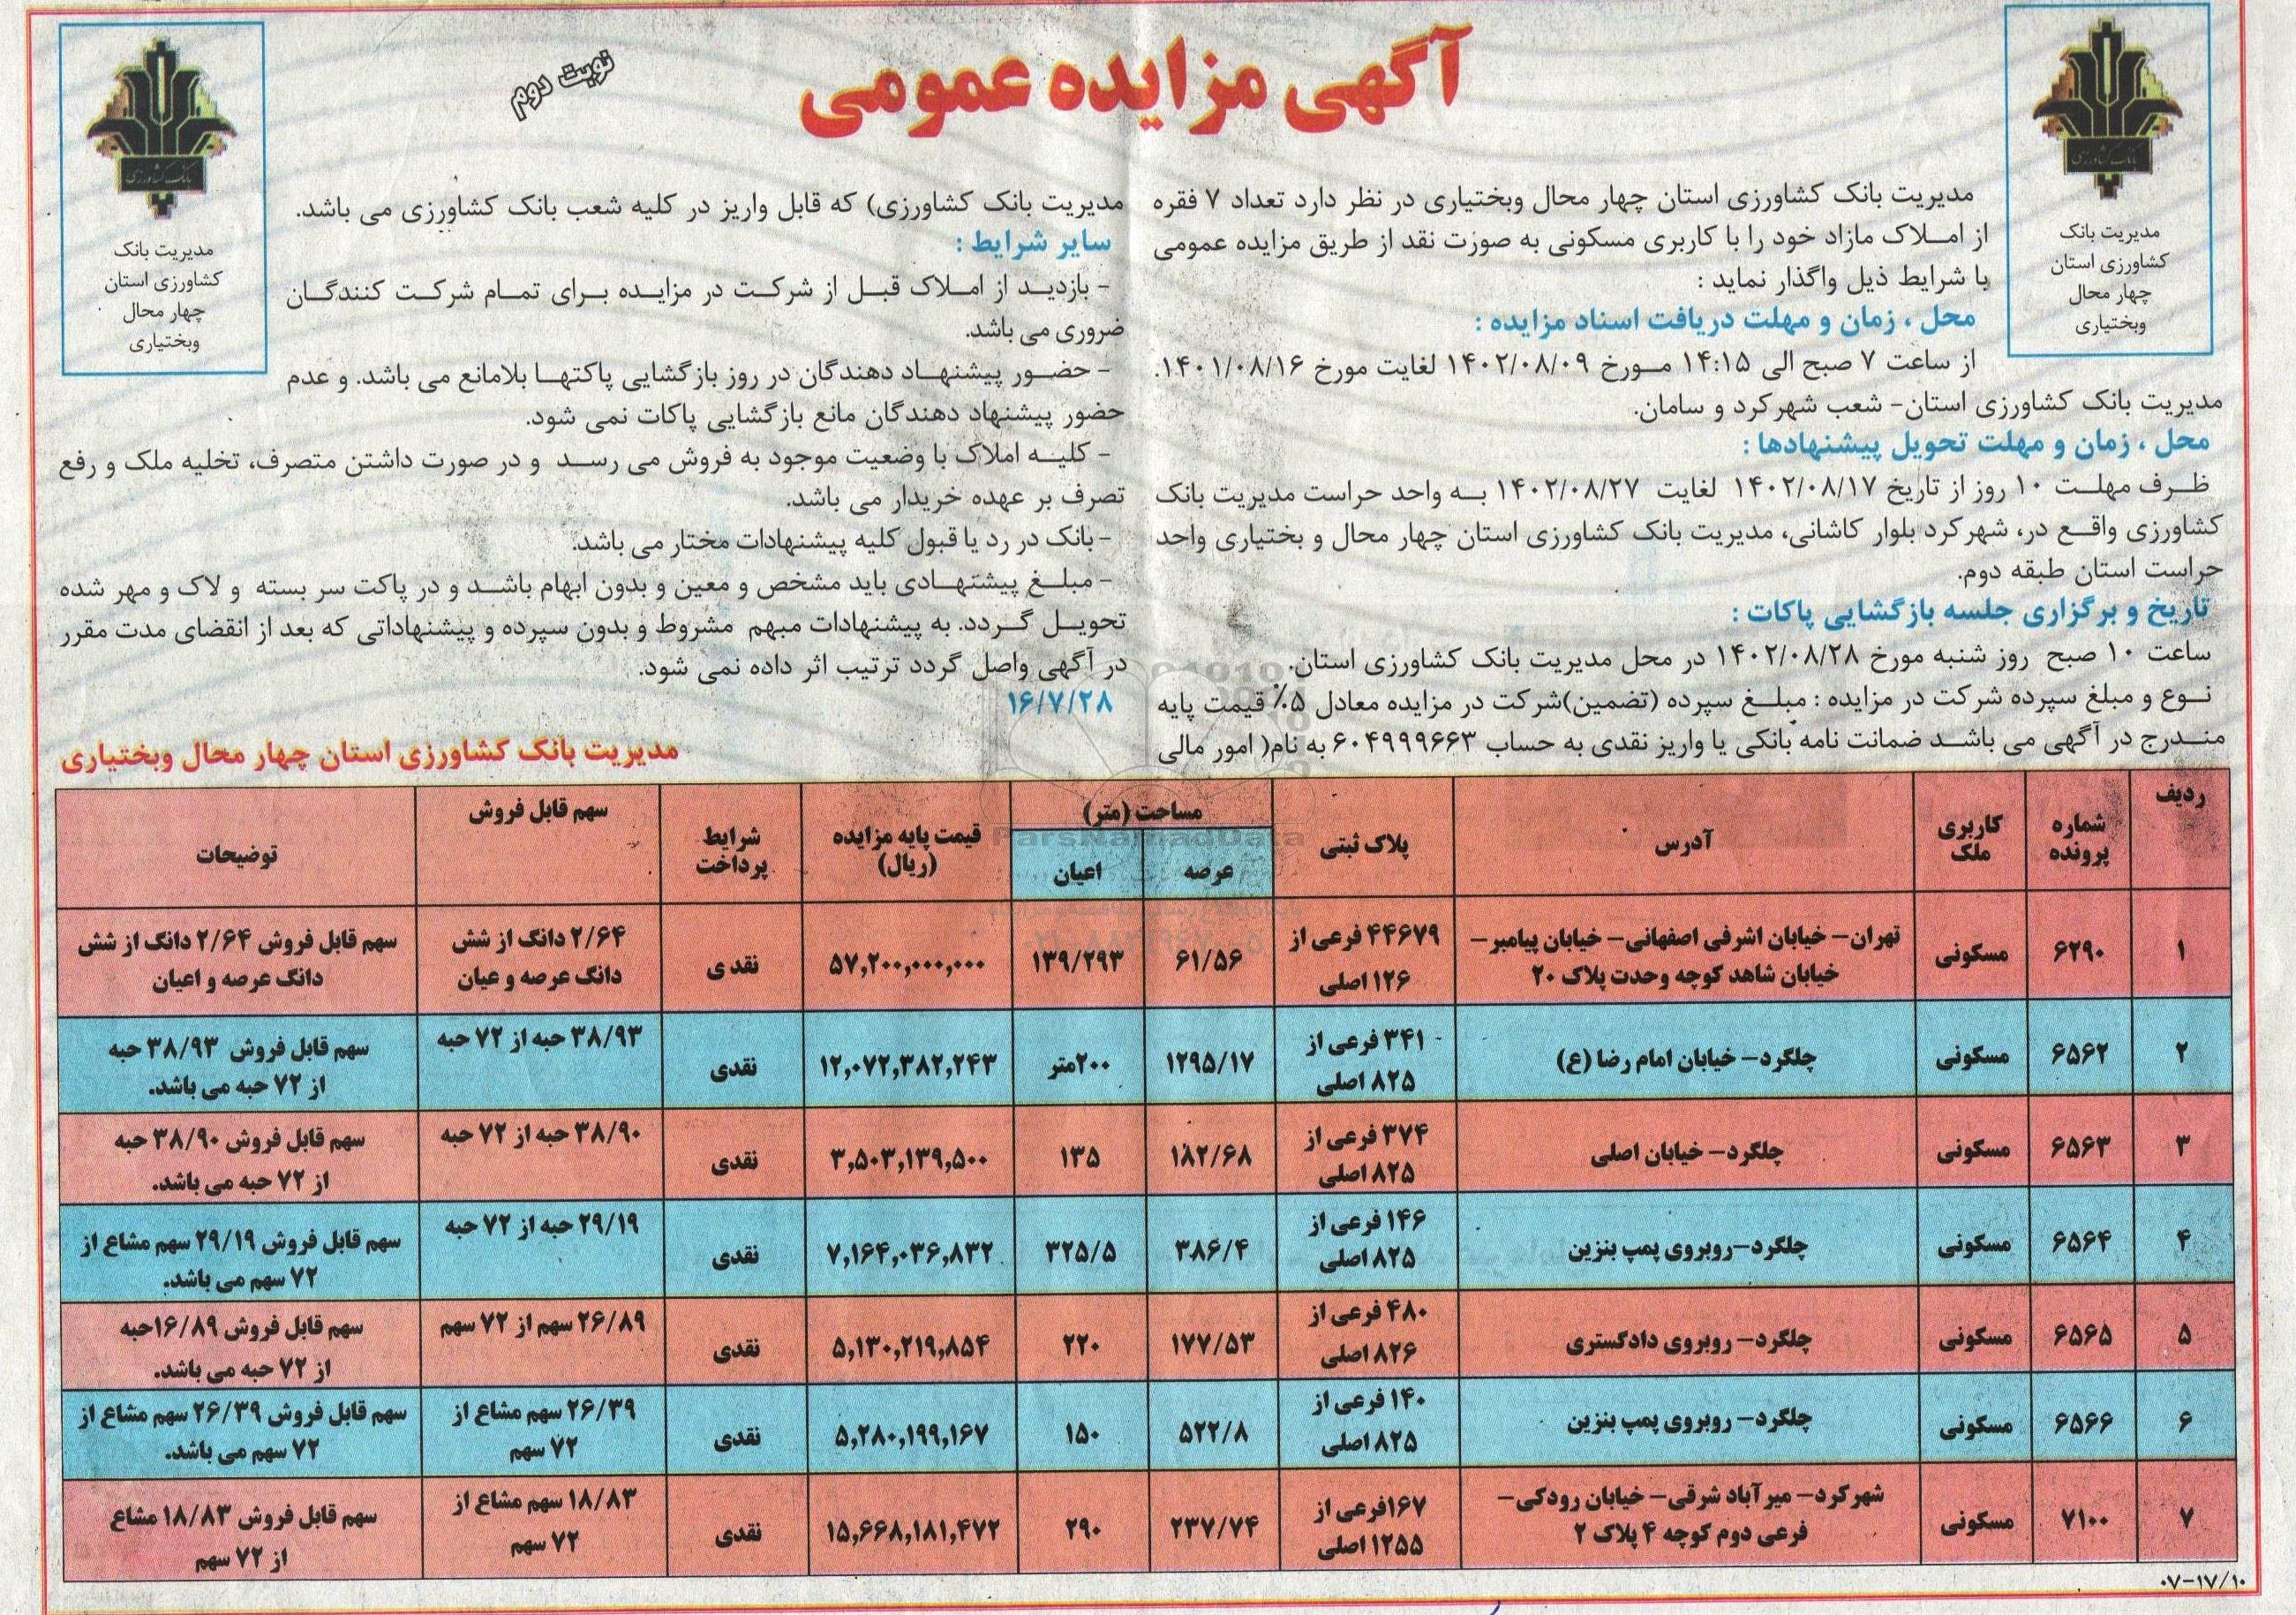 آگهی مزایده عمومی
نوبت دوم
بانک کشاورزی
مدیریت بانک
کشاورزی استان
چهار محال
وبختیاری
بانک کشاورزی
مدیریت بانک
کشاورزی استان
چهار محال
وبختیاری
مدیریت بانک کشاورزی استان چهار محال وبختیاری در نظر دارد تعداد ۷ فقره
از املاک مازاد خود را با کاربری مسکونی به صورت نقد از طریق مزایده عمومی
با شرایط ذیل واگذار نماید :
محل ، زمان و مهلت دریافت اسناد مزایده :
از ساعت ۷ صبح الی ۱۴:۱۵ مورخ ۱۴۰۲/۰۸/۰۹ لغایت مورخ ۱۴۰۱/۰۸/۱۶.
مدیریت بانک کشاورزی استان- شعب شهرکرد و سامان.
محل ، زمان و مهلت تحویل پیشنهادها :
ظرف مهلت ۱۰ روز از تاریخ ۱۴۰۲/۰۸/۱۷ لغایت ۱۴۰۲/۰۸/۲۷ به واحد حراست مدیریت بانک
کشاورزی واقع در، شهرکرد بلوار کاشانی، مدیریت بانک کشاورزی استان چهار محال و بختیاری واحد
حراست استان طبقه دوم.
تاریخ و برگزاری جلسه بازگشایی پاکات :
ساعت ۱۰ صبح روز شنبه مورخ ۱۴۰۲/۰۸/۲۸ در محل مدیریت بانک کشاورزی استان.
نوع و مبلغ سپرده شرکت در مزایده : مبلغ سپرده (تضمین)شرکت در مزایده معادل ۵٪ قیمت پایه
مندرج در آگهی می باشد ضمانت نامه بانکی یا واریز نقدی به حساب ۶۰۴۹۹۹۶۶۳ به نام( امور مالی
مدیریت بانک کشاورزی) که قابل واریز در کلیه شعب بانک کشاورزی می باشد.
سایر شرایط :
- بازدید از املاک قبل از شرکت در مزایده برای تمام شرکت کنندگان
ضروری می باشد.
- حضور پیشنهاد دهندگان در روز بازگشایی پاکتها بلامانع می باشد. و عدم
حضور پیشنهاد دهندگان مانع بازگشایی پاکات نمی شود.
- کلیه املاک با وضعیت موجود به فروش می رسد و در صورت داشتن متصرف، تخلیه ملک و رفع
تصرف بر عهده خریدار می باشد.
- بانک در رد یا قبول کلیه پیشنهادات مختار می باشد.
- مبلغ پیشنهادی باید مشخص و معین و بدون ابهام باشد و در پاکت سر بسته و لاک و مهر شده
تحویل گردد. به پیشنهادات مبهم مشروط و بدون سپرده و پیشنهاداتی که بعد از انقضای مدت مقرر
در آگهی واصل گردد ترتیب اثر داده نمی شود.
۱۶/۷/۲۸
مدیریت بانک کشاورزی استان چهار محال وبختیاری
ParsNamadData
ردیف | شماره پرونده | کاربری ملک | آدرس | پلاک ثبتی | مساحت (متر) عرصه | اعیان | قیمت پایه مزایده (ریال) | شرایط پرداخت | سهم قابل فروش | توضیحات
۱ | ۶۲۹۰ | مسکونی | تهران- خیابان اشرفی اصفهانی- خیابان پیامبر- خیابان شاهد کوچه وحدت پلاک ۲۰ | ۴۴۶۷۹ فرعی از ۱۲۶ اصلی | ۶۱/۵۶ | ۱۳۹/۲۹۳ | ۵۷,۲۰۰,۰۰۰,۰۰۰ | نقدی | ۲/۶۴ دانگ از شش دانگ عرصه و عیان | سهم قابل فروش ۲/۶۴ دانگ از شش دانگ عرصه و اعیان
۲ | ۶۵۶۲ | مسکونی | چلگرد- خیابان امام رضا (ع) | ۳۴۱ فرعی از ۸۲۵ اصلی | ۱۲۹۵/۱۷ | ۲۰۰متر | ۱۲,۰۷۲,۳۸۲,۲۴۳ | نقدی | ۳۸/۹۳ حبه از ۷۲ حبه | سهم قابل فروش ۳۸/۹۳ حبه از ۷۲ حبه می باشد.
۳ | ۶۵۶۳ | مسکونی | چلگرد- خیابان اصلی | ۳۷۴ فرعی از ۸۲۵ اصلی | ۱۸۲/۶۸ | ۱۳۵ | ۳,۵۰۳,۱۳۹,۵۰۰ | نقدی | ۳۸/۹۰ حبه از ۷۲ حبه | سهم قابل فروش ۳۸/۹۰ حبه از ۷۲ حبه می باشد.
۴ | ۶۵۶۴ | مسکونی | چلگرد-روبروی پمپ بنزین | ۱۴۶ فرعی از ۸۲۵ اصلی | ۳۸۶/۴ | ۳۲۵/۵ | ۷,۱۶۴,۰۳۶,۸۳۲ | نقدی | ۲۹/۱۹ حبه از ۷۲ حبه | سهم قابل فروش ۲۹/۱۹ سهم مشاع از ۷۲ سهم می باشد.
۵ | ۶۵۶۵ | مسکونی | چلگرد- روبروی دادگستری | ۴۸۰ فرعی از ۸۲۶ اصلی | ۱۷۷/۵۳ | ۲۲۰ | ۵,۱۳۰,۲۱۹,۸۵۴ | نقدی | ۲۶/۸۹ سهم از ۷۲ سهم | سهم قابل فروش ۱۶/۸۹حبه از ۷۲ حبه می باشد.
۶ | ۶۵۶۶ | مسکونی | چلگرد- روبروی پمپ بنزین | ۱۴۰ فرعی از ۸۲۵ اصلی | ۵۲۲/۸ | ۱۵۰ | ۵,۲۸۰,۱۹۹,۱۶۷ | نقدی | ۲۶/۳۹ سهم مشاع از ۷۲ سهم | سهم قابل فروش ۲۶/۳۹ سهم مشاع از ۷۲ سهم می باشد.
۷ | ۷۱۰۰ | مسکونی | شهرکرد- میرآباد شرقی- خیابان رودکی- فرعی دوم کوچه ۴ پلاک ۲ | ۱۶۷فرعی از ۱۲۵۵ اصلی | ۲۳۷/۷۴ | ۲۹۰ | ۱۵,۶۶۸,۱۸۱,۴۷۲ | نقدی | ۱۸/۸۳ سهم مشاع از ۷۲ سهم | سهم قابل فروش ۱۸/۸۳ مشاع از ۷۲ سهم
۰۷-۱۷/۱۰